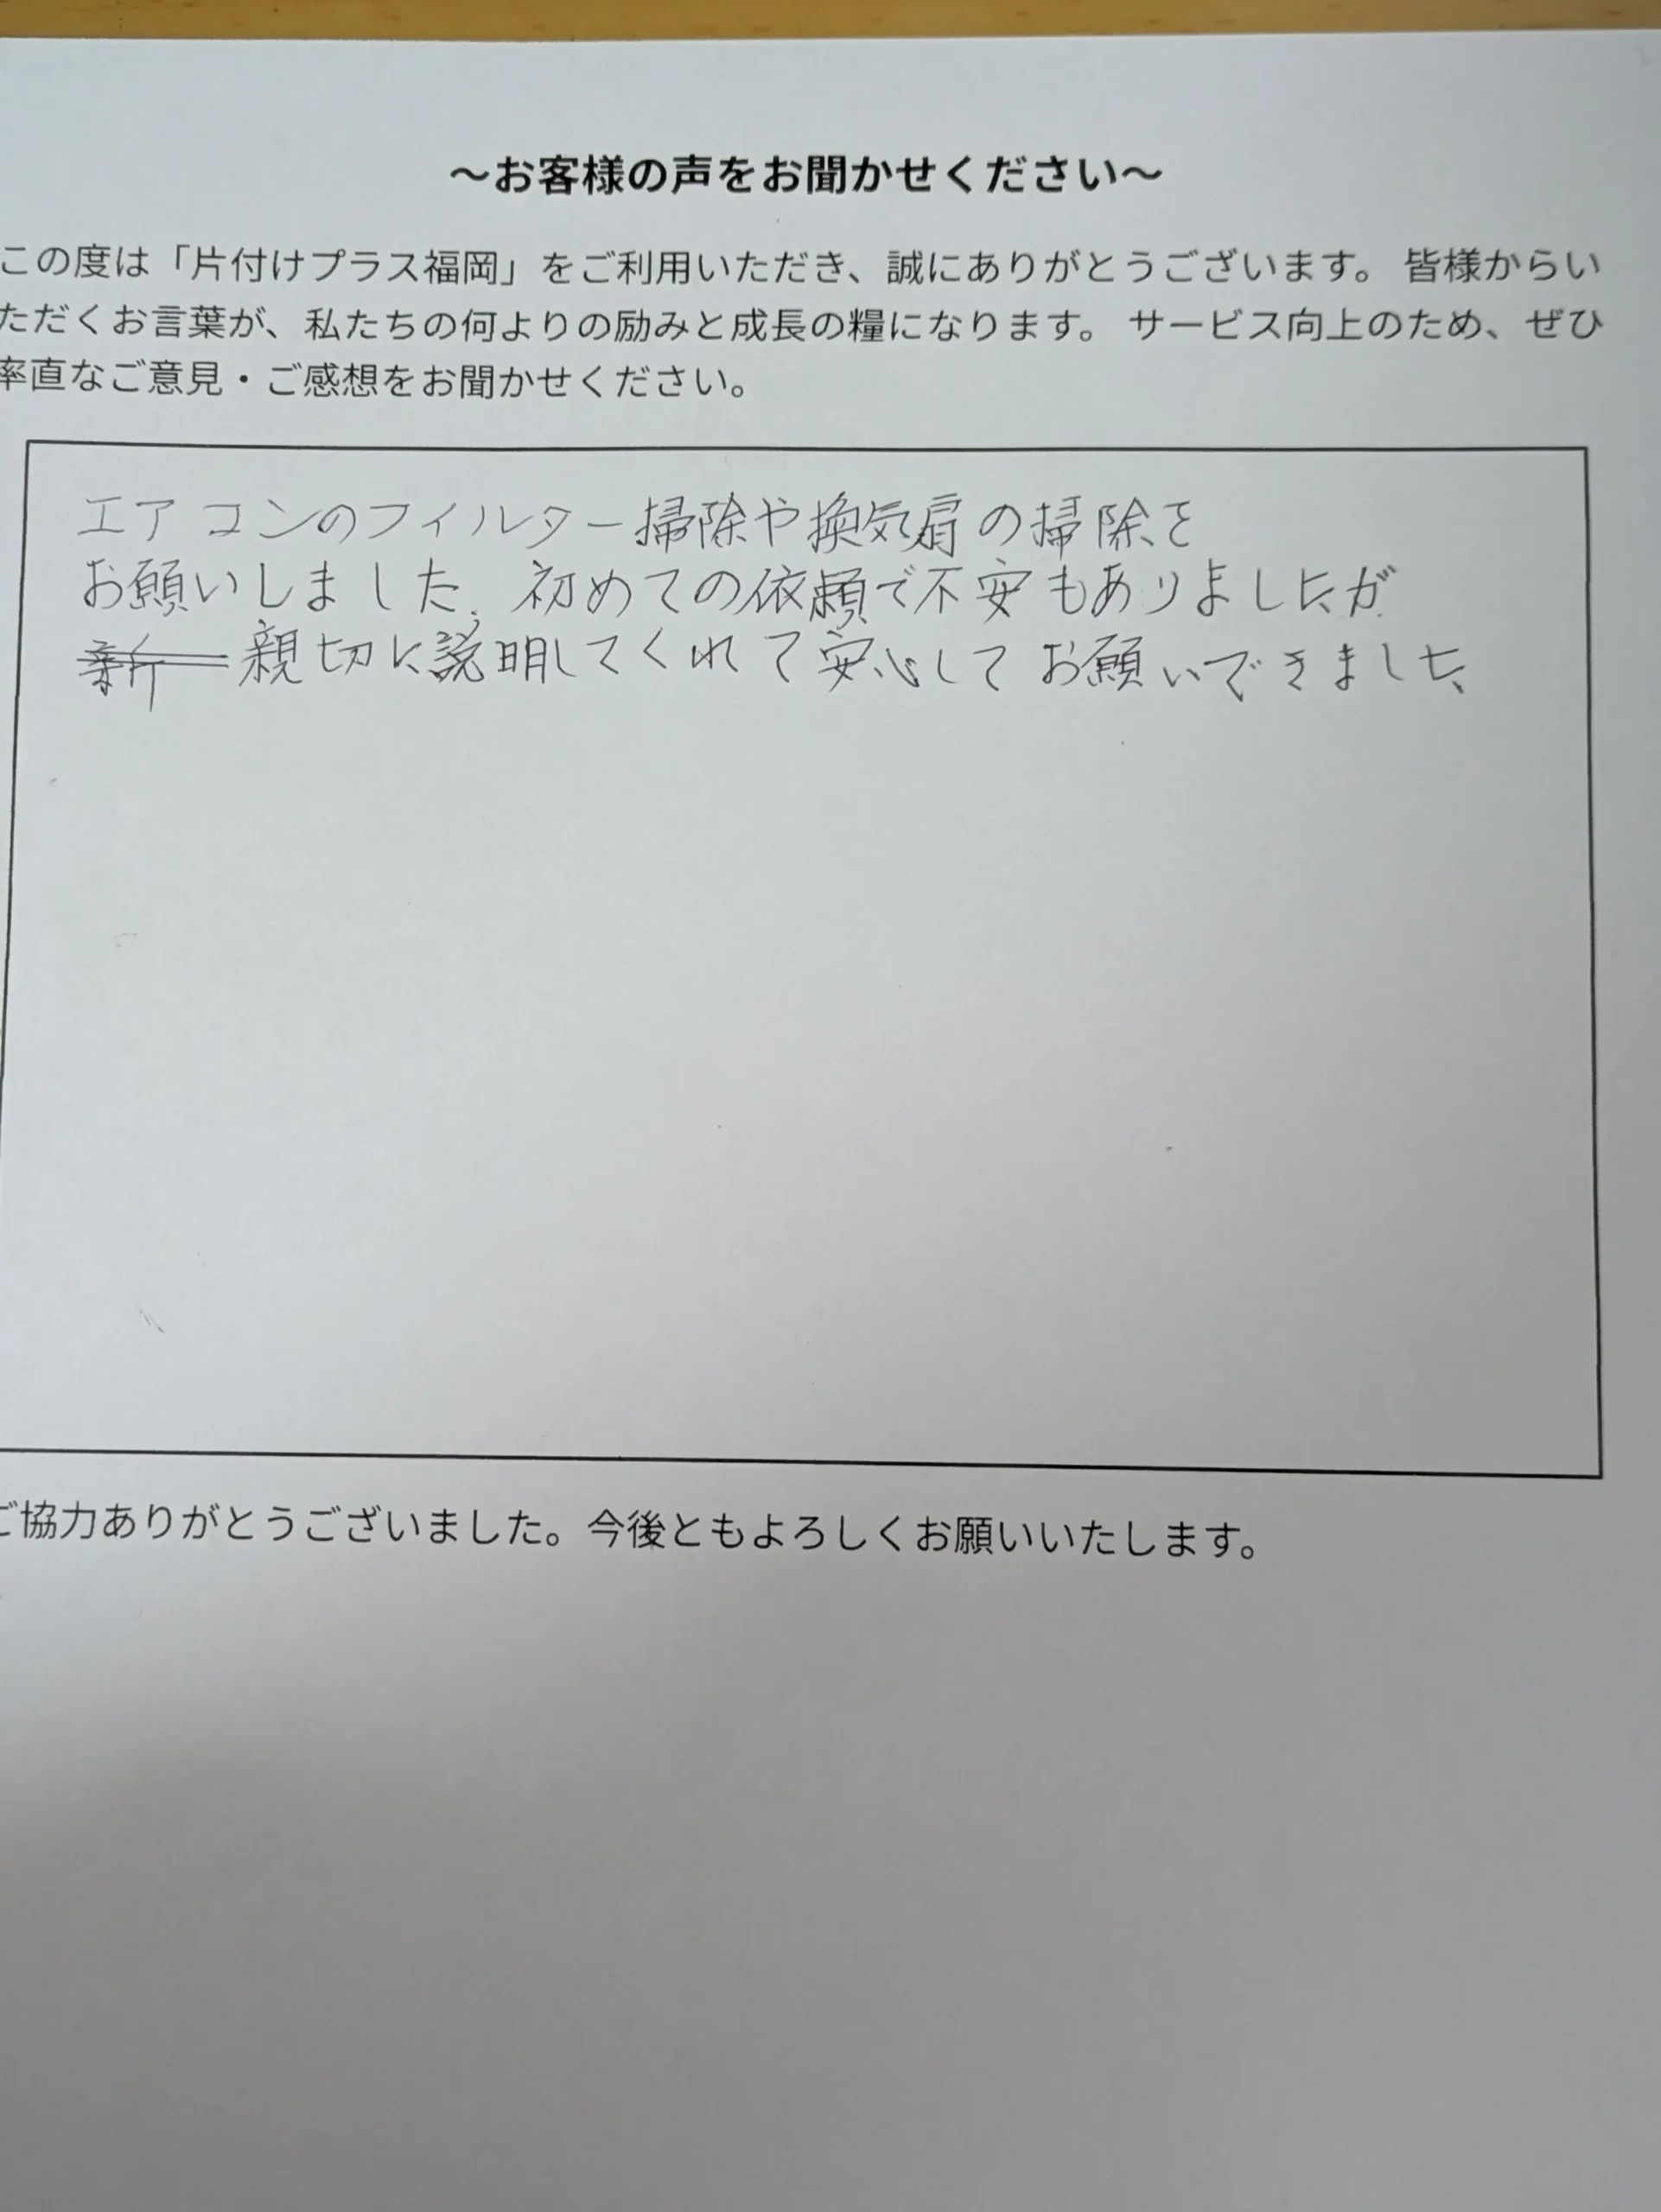 ～お客様の声をお聞かせください～
この度は「片付けプラス福岡」をご利用いただき、誠にありがとうございます。 皆様からい
ただくお言葉が、私たちの何よりの励みと成長の糧になります。 サービス向上のため、ぜひ
率直なご意見・ご感想をお聞かせください。
エアコンのフィルター掃除や換気扇の掃除を
お願いしました。初めての依頼で不安もありましたが
親切に説明してくれて安心してお願いできました
ご協力ありがとうございました。今後ともよろしくお願いいたします。